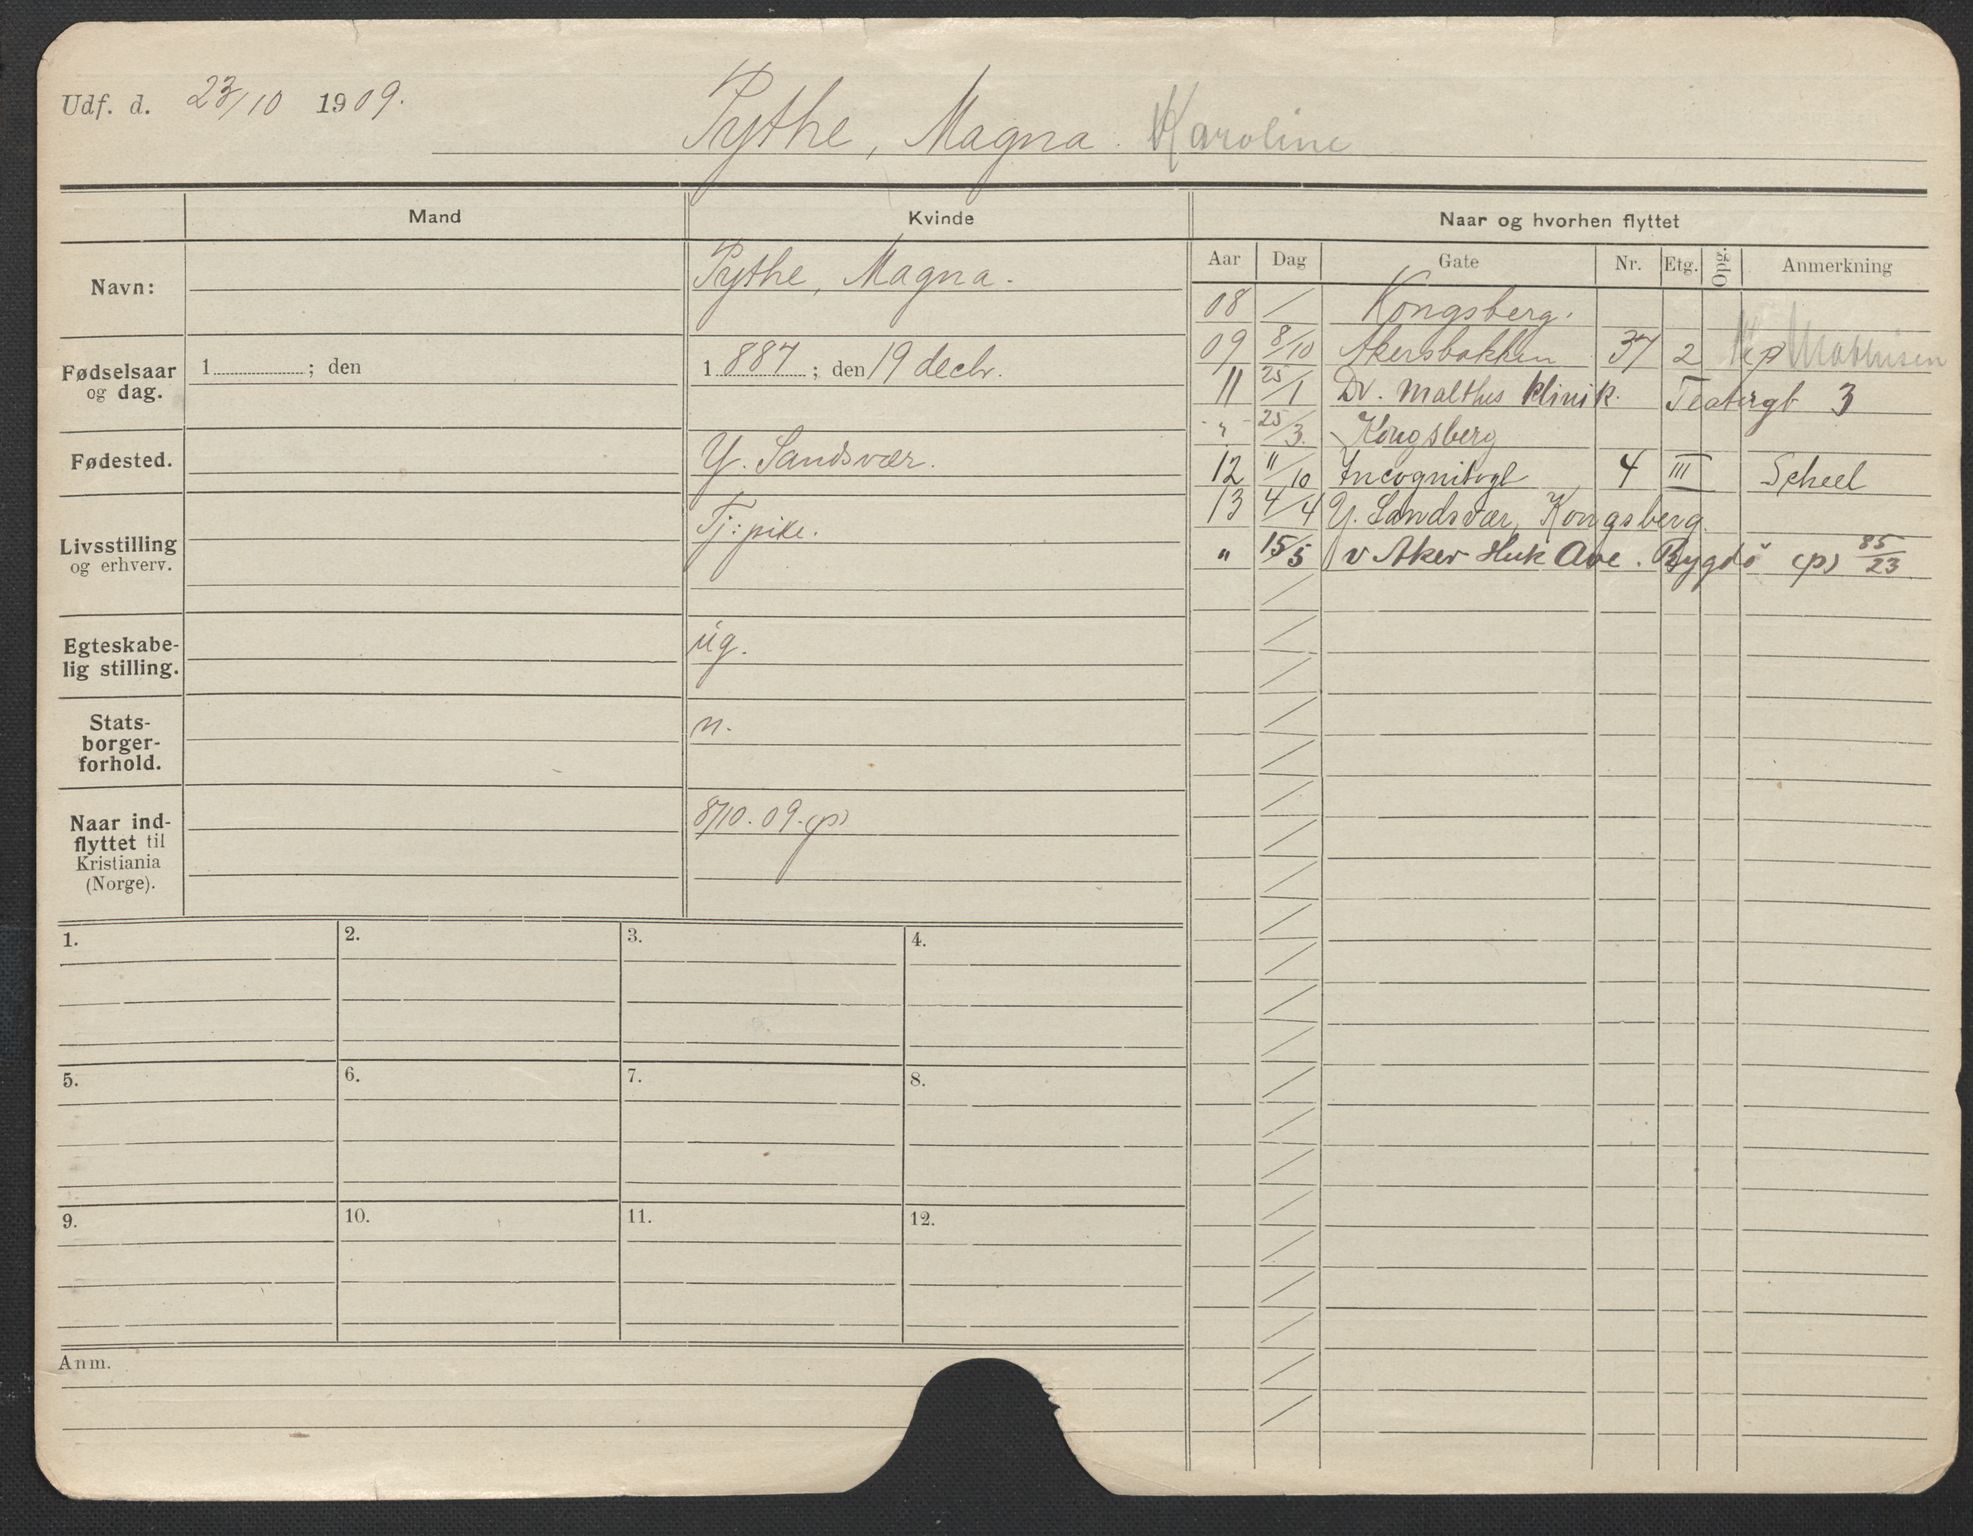 Udf. d. 23/10 1909.
Pythe, Magna Karoline
Mand
Kvinde
Naar og hvorhen flyttet
Aar Dag Gate Nr. Etg. Opg. Anmerkning
Navn:
Pythe, Magna.
Fødselsaar og dag.
1 ; den
1887 ; den 19 decbr.
Fødested.
Y. Sandsvær.
Livsstilling
og erhverv.
Tj: pike.
Egteskabe-
lig stilling.
ug.
Stats-
borger-
forhold.
n.
Naar ind-
flyttet til
Kristiania
(Norge).
8/10. 09. (p)
08 / Kongsberg.
09 8/10 Akersbakken 37 2
11 25/1 Dr. Malthes klinik. Teatergt 3
" 25/3. Kongsberg
12 "/10 Incognitogt 4 III Scheel
13 4/4 Y. Sandsvær, Kongsberg.
" 15/5 v Aker Huk Ave. Bygdø (p) 85/23
1. 2. 3. 4.
5. 6. 7. 8.
9. 10. 11. 12.
Anm.